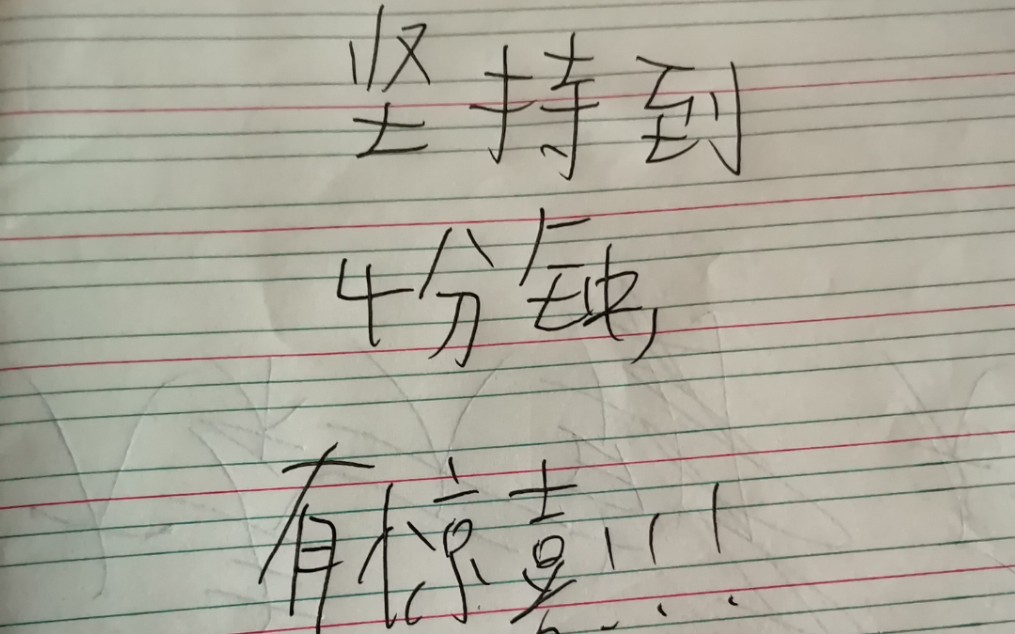 坚持到
4分钟,
有惊喜!!!